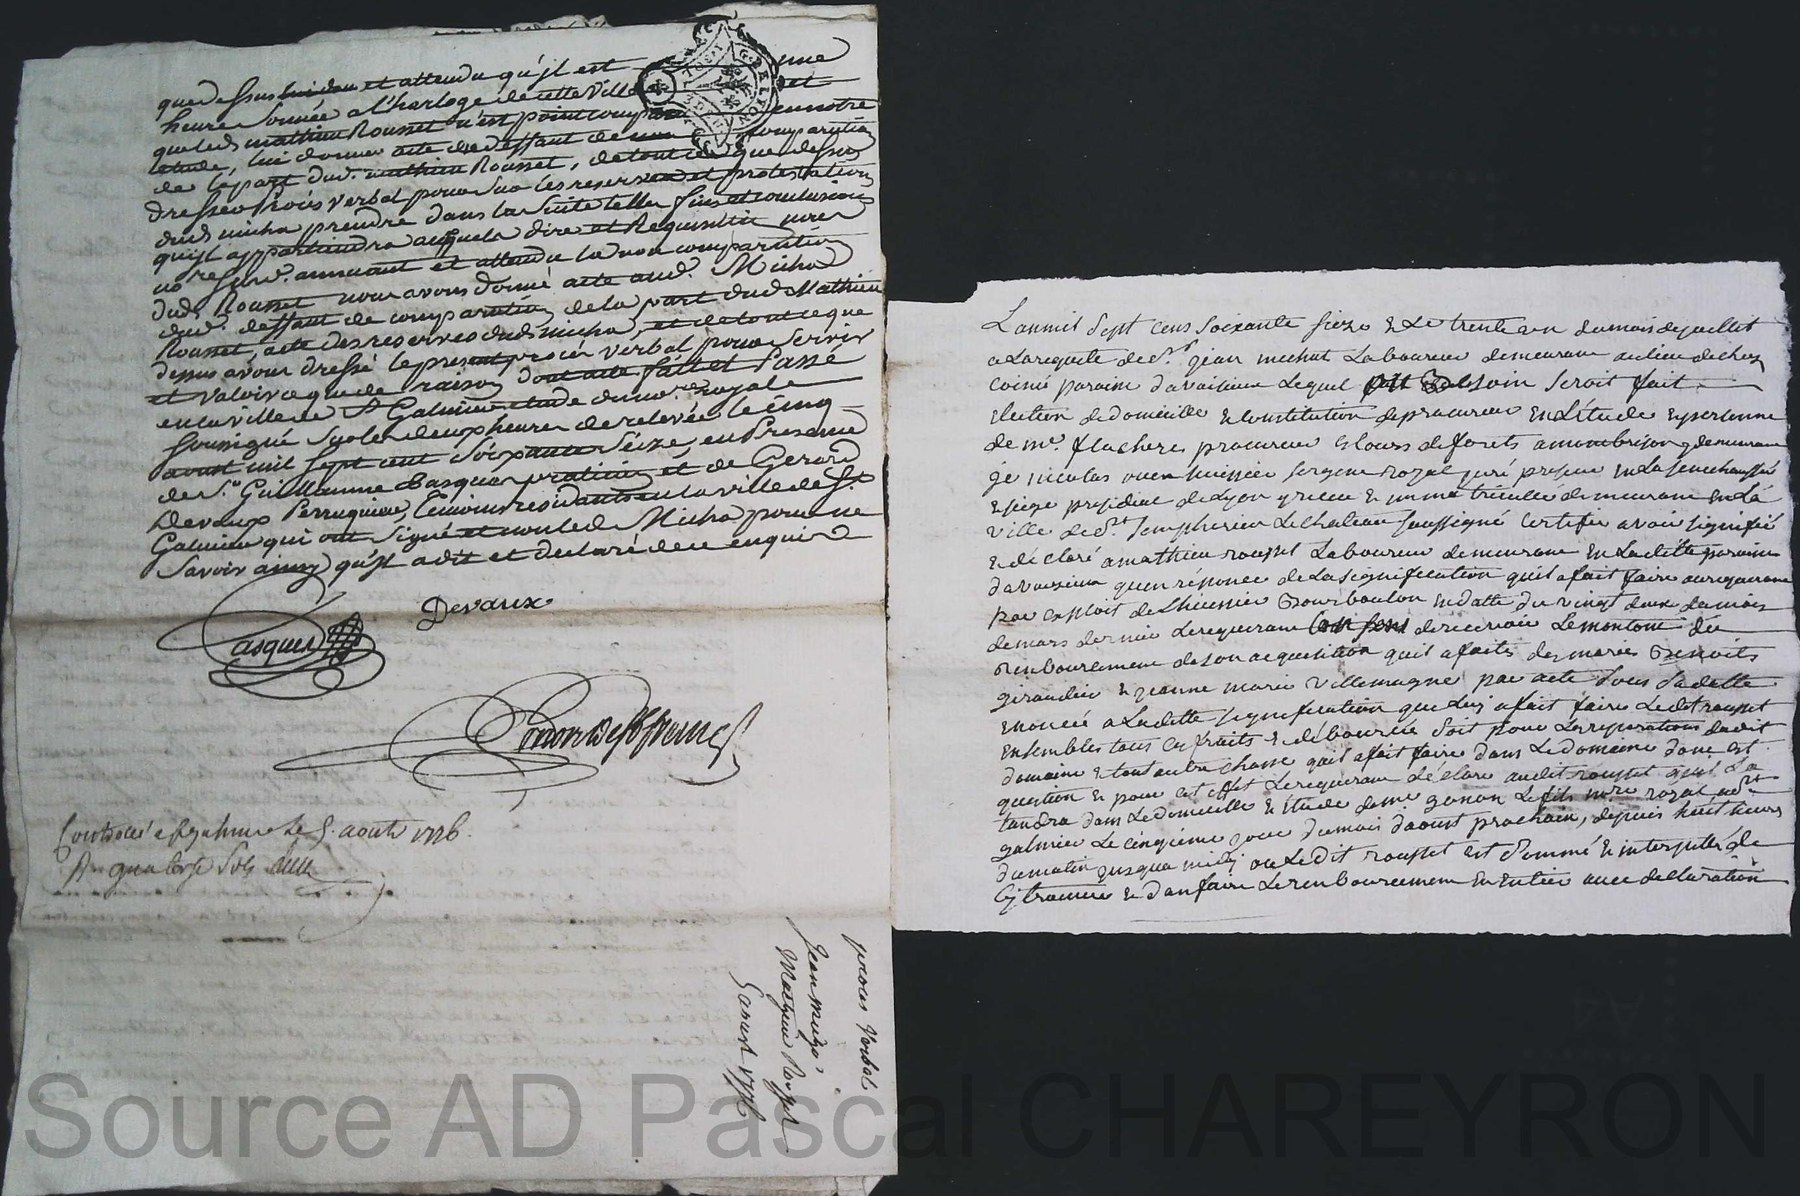 que dessus et attendu qu'jl est une
heure sonnée a l'horloge de cette Ville et
que led mathieu Rousset n'est point comparu en notre
etude, lui donner acte du deffaut de non comparution
de la part dud. mathieu Rousset, de tout ce que dessus
dresser procès verbal pour sur les reserves et protestations
dud micha prendre dans la suite telles fins et conclusions
qu'jl appartiendra auquels dire et Requisition nous
no.re susd. annuant et attendu la non comparution
dud. Rousset nous avons donné acte aud. Micha
dud. deffaut de comparution de la part dud. Mathieu
Rousset, acte des reserves dud micha, et de tout ce que
dessus avons dressé le present procès verbal pour servir
et valoir ce que de raison dont acte fait et Passé
en la ville de St Galmier etude du no.re royal
soussigné sur les deux heures de relevée le cinq
aoust mil sept cent soixante Seize, en Presence
de S.r Guillaume Pasquer praticien et de Gerard
Devaux Perruquier, temoins residants en la ville de St
Galmier qui ont signé et non led. Micha pour ne
savoir ainsy qu'jl a dit et declaré de ce enquis
Devaux
Pasquer
Controlé a St galmier le 5. aout 1776.
R quatorze sols
procès Verbal
Jean Micha
Mathieu Rousset
5 aoust 1776
L'an mil sept cens soixante sieze & le trente un du mois de juillet
a la requette de S.r jean michat Laboureur demeurant au lieu de chez
coimé paroisse d'avaisieux lequel soin seroit fait
election de domicille & Constitution de procureur en L'étude & personne
de m.e flachere procureur es Cours de forets a montbrison y demeurant
je nicolas huissier sergent royal juré priseur en La senechaussée
& siege presidial de Lyon y receu & immatriculle demeurant en La
ville de St simphorien Le chateau soussigné certifie avoir signifié
& déclaré a mathieu rousset Laboureur demeurant en La ditte paroisse
d'avaizieux qu'en réponce de La signiffication qu'il a fait faire au requerant
par exploit de L'huissier Bourboulon en datte du vingt deux du mois
de mars dernier Le requerant de recevoir Le montant du
remboursement de son acquisition qu'il a faitte des maries Benoits
giraudier & jeanne marie Villemagne par acte sous sa datte
enoncée a La ditte signiffication que Luy a fait faire Le dit rousset
ensembles tous ces fraits & débourcée soit pour Les reparations dudit
domaine & tout autre chosse qu'il a fait faire dans Le domaine dont est
question & pour cet effet Le requerant déclare audit rousset qu'il L'a
tandra dans Le domicille & Etude de me gonon Le fils no.re royal aud. St
galmier Le cinqieme jour du mois d'aoust prochain, depuis huit heures
du matin jusqu'a midy ou Le dit rousset est sommé & interpellé de
s'y trouver & d'en faire Le remboursement en entier avec declaration
Source AD Pascal CHAREYRON